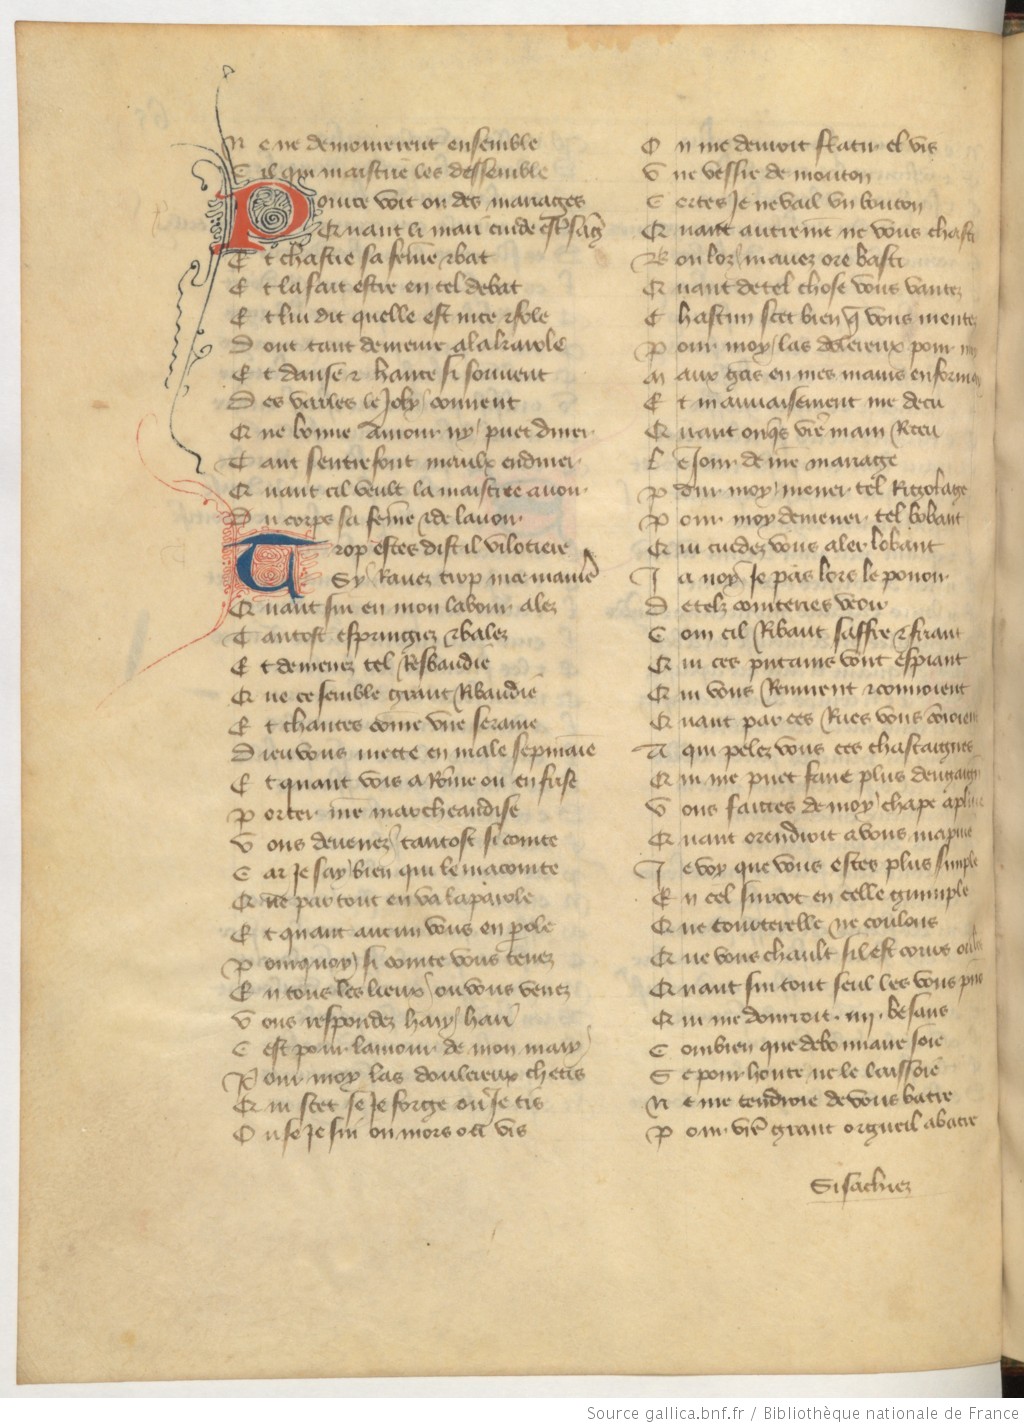 N e ne demourerent ensemble
C il qui maistrie les dessemble
P once voit on des mariages
Quant li mari cuide estre sages
E t chastie sa feme & bat
E t la fait estre en tel debat
E t lui dit quelle est nice & fole
D ont tant demeure a la karole
E t danse & hante si souvent
D es varles le joly convent
Q ue bonne amour ny puet durer
T ant sentrefont maulx endurer
Q uant cil veult la maistrie avoir
D u corps sa feme & de lavoir
T rop estes dist il vilotiere
Sy Ravez trop nice maniere
Q uant sui en mon labour alez
T antost espringuez & balez
E t demenez tel Resbaudie
Q ue ce semble grant Ribaudie
E t chantes come une seraine
D ieu vous mette en male sepmaine
E t quant vois a Rome ou en frise
P orter nre marcheandise
V ous devenez tantost si cointe
C ar Je say bien qui le macointe
Q ue par tout en va la parole
E t quant aucun vous en parole
P ourquoy si cointe vous tenez
E n tous les lieux ou vous venez
V ous respondez hary hari
C est pour lamour de mon mary
P our moy las doulereux chetis
Q ui scet se Je forge ou Je tis
O u se Je sui ou mors ou vis
O n me devroit flatir el vis
U ne vessie de mouton
C ertes Je ne vail un bouton
Q uant autremt ne vous chasti
M oult grant los mavez ore basti
Q uant de tel chose vous vantez
C hascun scet bien q vous mentez
P our moy las doulereux pour moy
M aux gans en mes mains enformay
E t mauvaisement me decu
Q uant onqs vre main Receu
L e Jour de nre mariage
P our moy mener tel Rigolage
P our moy demener tel bobant
Q ui cuidez vous aler lobant
J a noy Je pas lors le pouoir
D e telz cointeries veoir
C om cil Ribaut saffre & friant
Q ui ces putains vont espiant
Q ui vous Remirent & convoient
Q uant par ces Rues vous convoient
A qui pelez vous ces chastaignes
Q ui me puet faire plus dengaigne
V ous faittes de moy chape a pluie
Q uant orendroit a vous mapuie
J e voy que vous estes plus simple
E n cel surcot en celle guimple
Q ue tourterelle ne coulons
Q ue vous chault sil est cours ou lons
Q uant sui tout seul les vous presens
Q ui me donroit .iiij. besans
C ombien que debonnaire soie
S e pour honte ne le laissoie
N e me tendroie de vous batre
P our vre grant orgueil abatre
Si sachiez
Source gallica.bnf.fr / Bibliothèque nationale de France